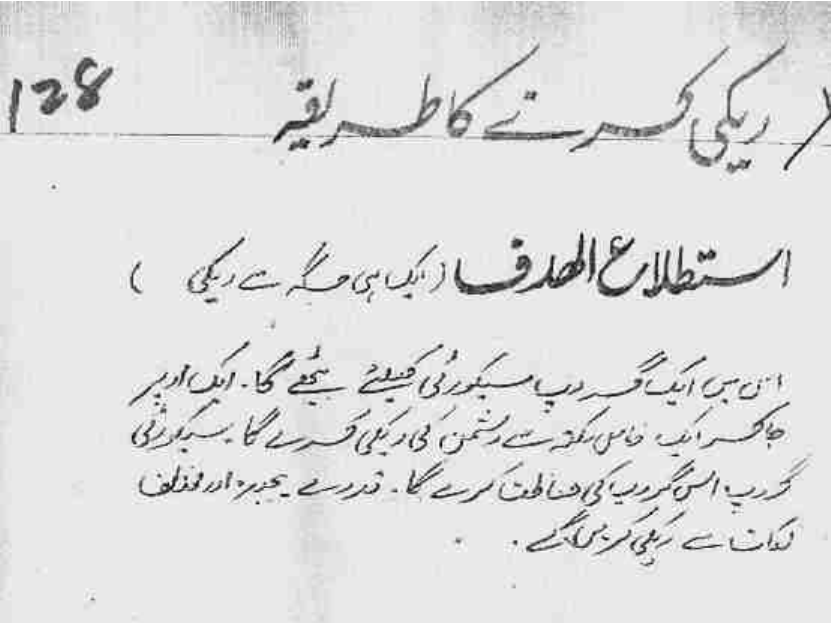 128
ریکی کرنے کا طریقہ
استطلاع الھدف (ایک ہی جگہ سے ریکی)
اس میں ایک گروپ سیکورٹی کیلئے بیٹھے گا۔ ایک اوپر
جاکر ایک خاص نکتہ سے دشمن کی ریکی کرے گا۔ سیکورٹی
گروپ اس گروپ کی حفاظت کرے گا۔ قدرے اور مختلف
سے ریکی کریں گے۔